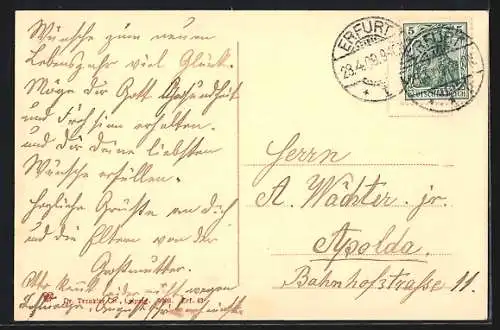 Wünsche zum neuen
Lebensjahr viel Glück.
Möge dir Gott Gesundheit
und Frohsinn erhalten.
und dir deine liebsten
Wünsche erfüllen.
Herzliche Grüße an dich
und die Eltern von der
Großmutter.
kommt leider nicht wegen
ERFURT
28.4.09.9-10
ERFURT
5
5
DEUTSCHES REICH
Herrn
A. Wächter. jr.
Apolda.
Bahnhofstrasse 11.
Dr. Trenkler Co., Leipzig. Erf.